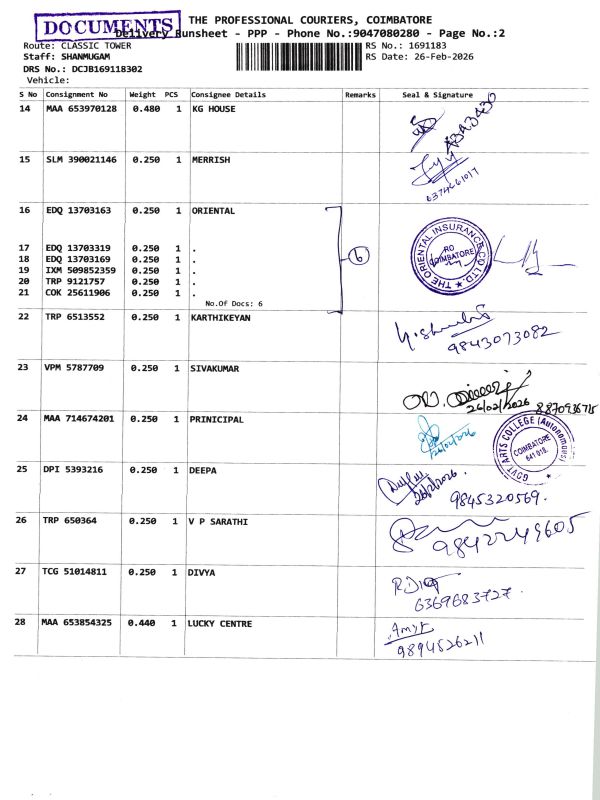 DOCUMENTS
THE PROFESSIONAL COURIERS, COIMBATORE
Delivery Runsheet - PPP - Phone No.:9047080280 - Page No.:2
Route: CLASSIC TOWER RS No.: 1691183
Staff: SHANMUGAM RS Date: 26-Feb-2026
DRS No.: DCJB169118302
Vehicle:
S No Consignment No Weight PCS Consignee Details Remarks Seal & Signature
14 MAA 653970128 0.480 1 KG HOUSE
15 SLM 390021146 0.250 1 MERRISH
6374661017
16 EDQ 13703163 0.250 1 ORIENTAL
THE ORIENTAL INSURANCE CO LTD.
RO
COIMBATORE
17 EDQ 13703319 0.250 1 .
18 EDQ 13703169 0.250 1 . 6
19 IXM 509852359 0.250 1 .
20 TRP 9121757 0.250 1 .
21 COK 25611906 0.250 1 .
No.Of Docs: 6
22 TRP 6513552 0.250 1 KARTHIKEYAN
9843073082
23 VPM 5787709 0.250 1 SIVAKUMAR
26/02/2026
24 MAA 714674201 0.250 1 PRINICIPAL
26/02/2026
GOVT ARTS COLLEGE (Autonomous)
COIMBATORE
641 018.
25 DPI 5393216 0.250 1 DEEPA
26/2/2026.
9845320569.
26 TRP 650364 0.250 1 V P SARATHI
9842249605
27 TCG 51014811 0.250 1 DIVYA
6369683727.
28 MAA 653854325 0.440 1 LUCKY CENTRE
9894526211